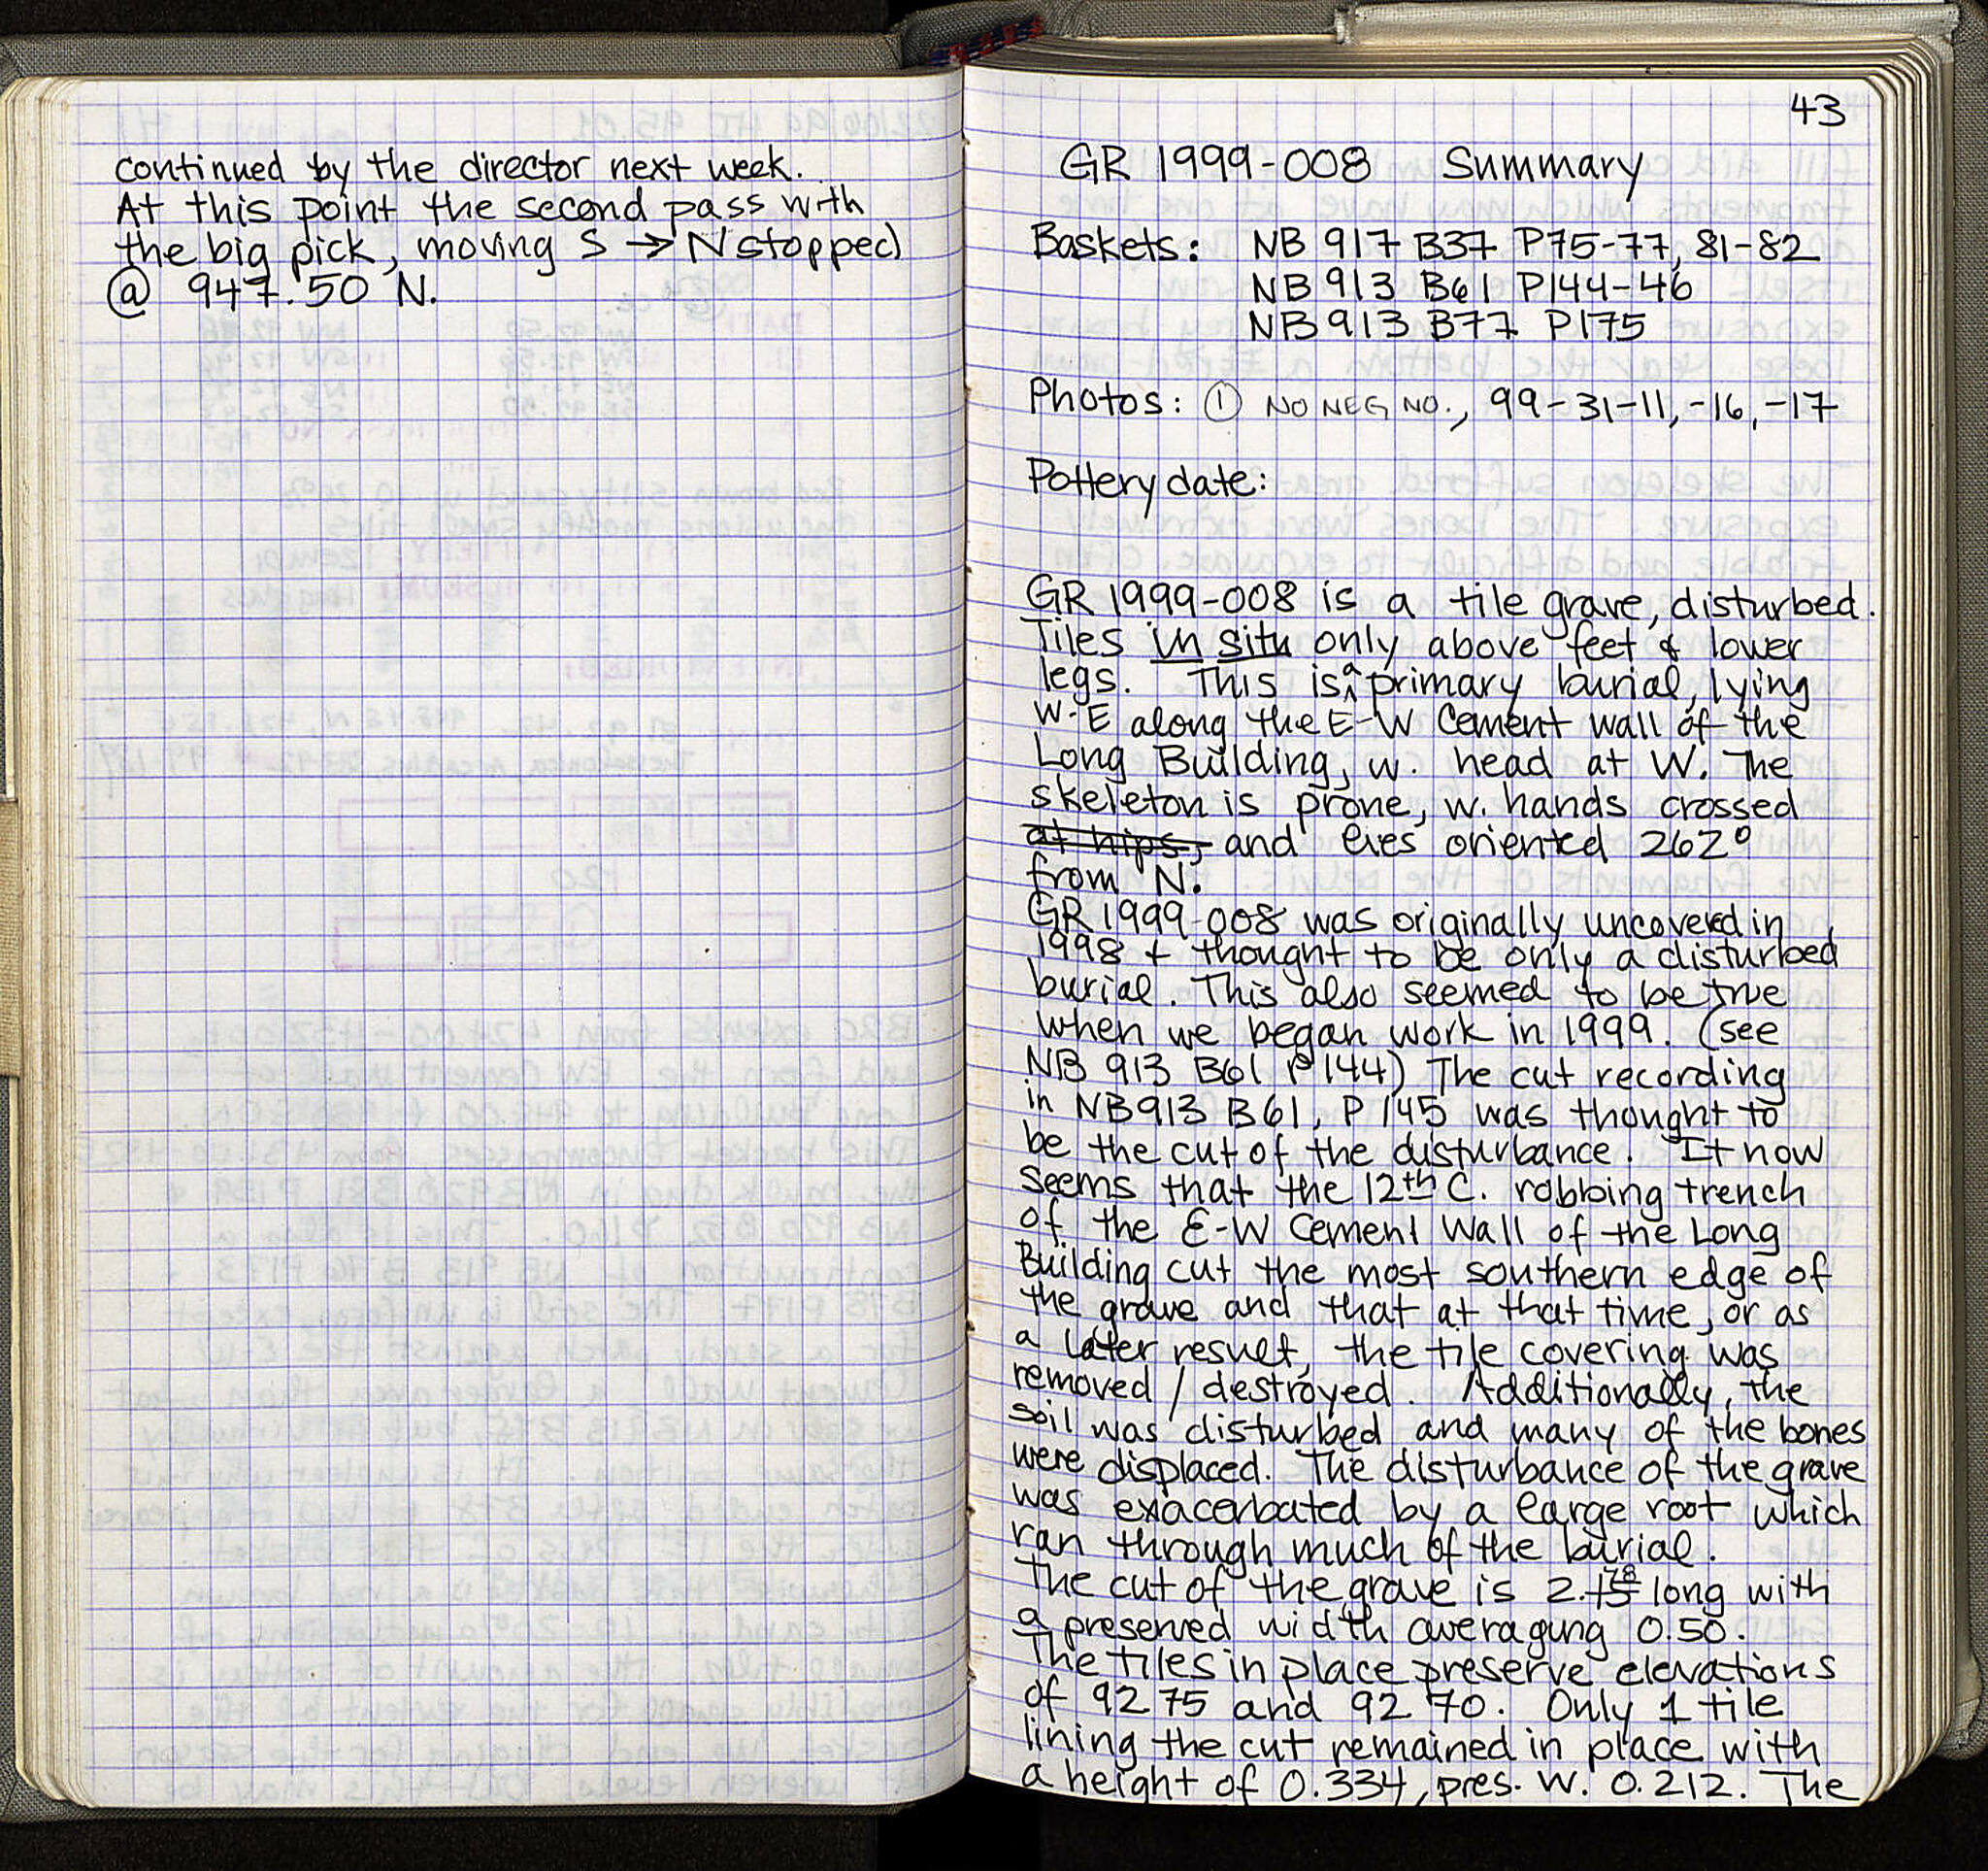 continued by the director next week.
At this point the second pass with
the big pick, moving S → N stopped
@ 947.50 N.
43
GR 1999-008 Summary
Baskets: NB 917 B37 P75-77, 81-82
NB 913 B61 P144-46
NB 913 B77 P175
Photos: ① NO NEG NO., 99-31-11, -16, -17
Pottery date:
GR 1999-008 is a tile grave, disturbed.
Tiles in situ only above feet & lower
legs. This is a primary burial, lying
W-E along the E-W Cement wall of the
Long Building, w. head at W. The
skeleton is prone, w. hands crossed
at hips, and lies oriented 262°
from N.
GR 1999-008 was originally uncovered in
1998 + thought to be only a disturbed
burial. This also seemed to be true
when we began work in 1999. (see
NB 913 B61 P144) The cut recording
in NB 913 B61, P145 was thought to
be the cut of the disturbance. It now
seems that the 12th C. robbing trench
of the E-W Cement Wall of the Long
Building cut the most southern edge of
the grave and that at that time, or as
a later result, the tile covering was
removed / destroyed. Additionally, the
soil was disturbed and many of the bones
were displaced. The disturbance of the grave
was exacerbated by a large root which
ran through much of the burial.
The cut of the grave is 2.78 long with
a preserved width averaging 0.50.
The tiles in place preserve elevations
of 92.75 and 92.70. Only 1 tile
lining the cut remained in place with
a height of 0.334, pres. W. 0.212. The